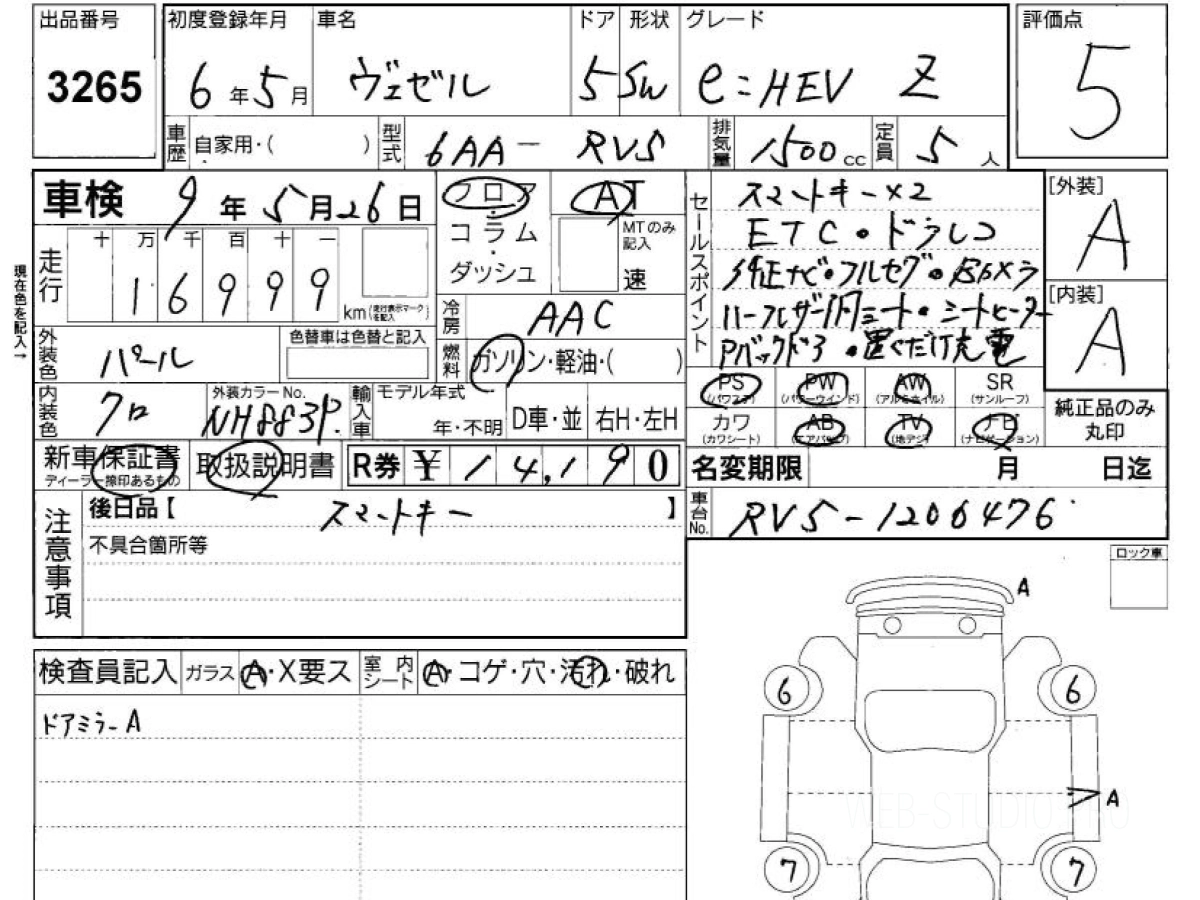 出品番号 初度登録年月 車名 ドア 形状 グレード 評価点
3265 6年5月 ヴェゼル 5 SW e:HEV Z 5
車歴 自家用・( ) 型式 6AA-RV5 排気量 1500cc 定員 5人
車検 9年5月26日 フロア AT セールスポイント スマートキー×2 [外装]
コラム MTのみ記入 ETC・ドラレコ A
走行 十 万 千 百 十 一 ダッシュ 速 純正ナビ・フルセグ・Bカメラ
現在色を記入→ 16999 km(走行表示マークを記入) 冷房 AAC ハーフレザー シート・シートヒーター [内装]
外装色 パール 色替車は色替と記入 燃料 ガソリン・軽油・( ) Pバックドア・置くだけ充電 A
内装色 クロ 外装カラーNo. NH883P. 輸入車 モデル年式 年・不明 D車・並 右H・左H
PS(パワステ) PW(パワーウインド) AW(アルミホイル) SR(サンルーフ)
カワ(カワシート) AB(エアバッグ) TV(地デジ) ナビ(ナビゲーション) 純正品のみ丸印
新車保証書 ディーラー捺印あるもの 取扱説明書 R券 ¥14,190 名変期限 月 日迄
注意事項 後日品【 スマートキー 】 車台No. RV5-1206476
不具合箇所等
ロック車
A
検査員記入 ガラス A・X要ス 室内シート A・コゲ・穴・汚れ・破れ
ドアミラーA
6 6
A
WEB-STUDIO.PRO
7 7